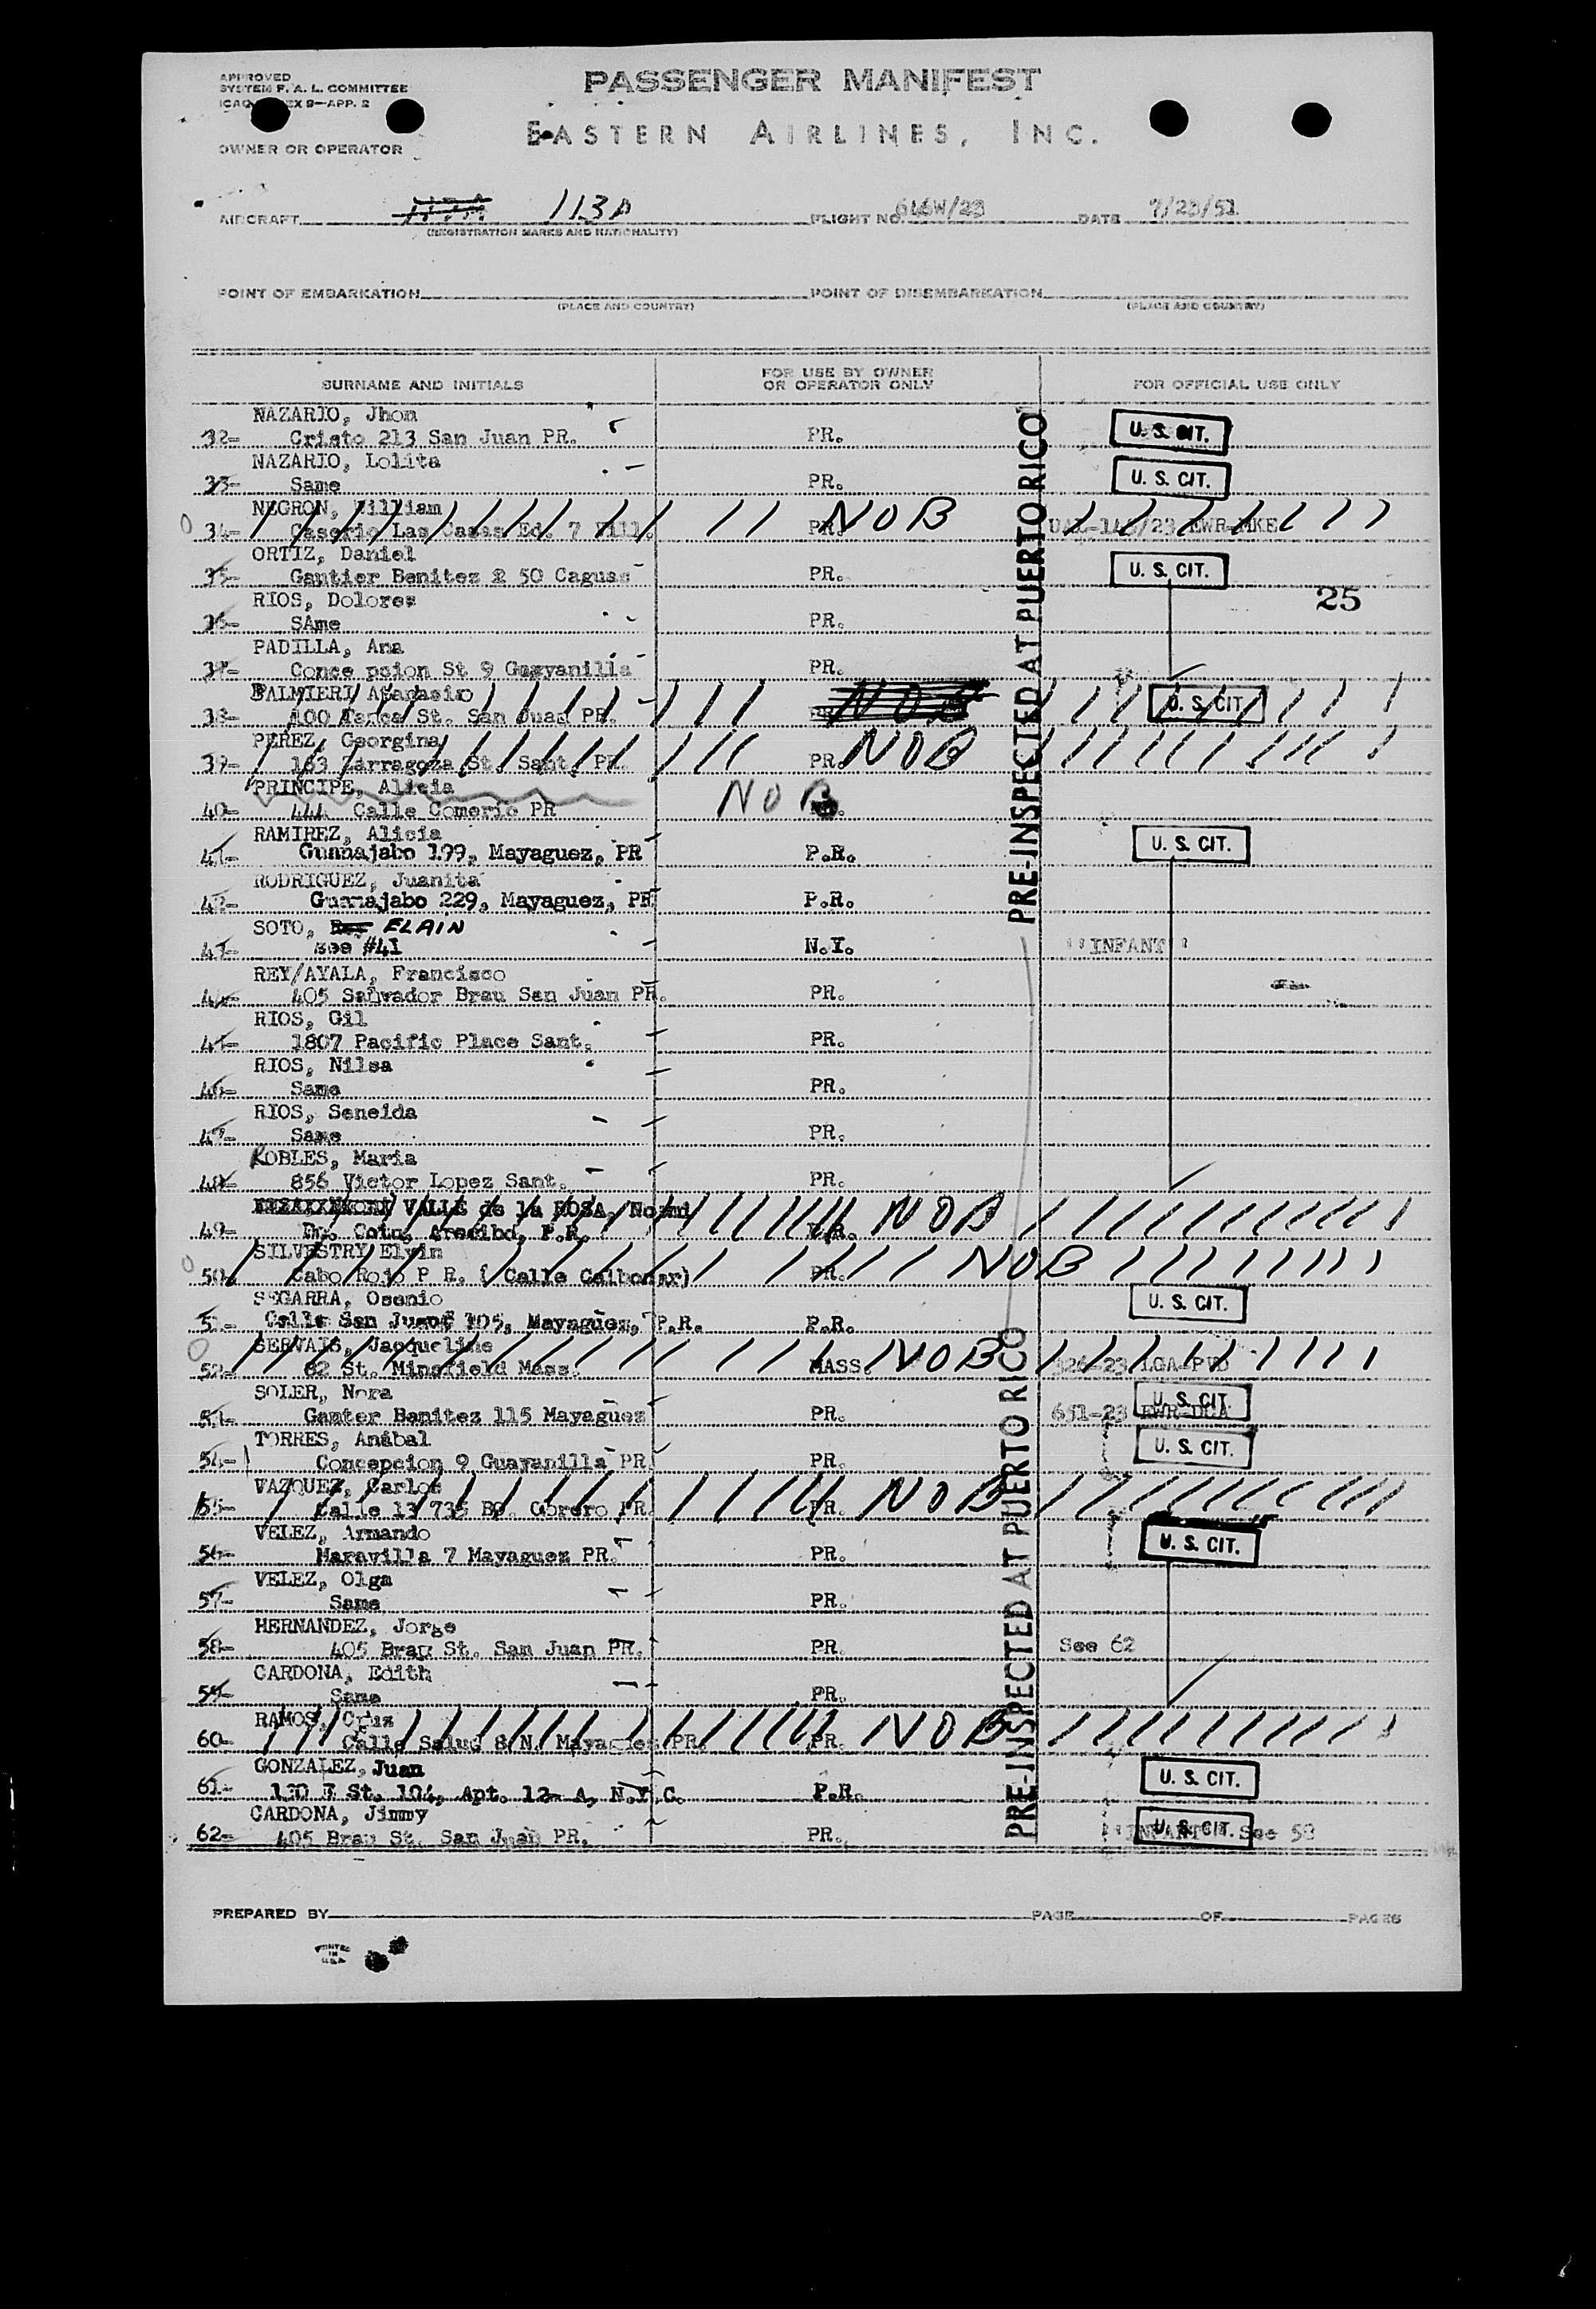 APPROVED
SYSTEM F. A. L. COMMITTEE
EX 9—APP. 2
PASSENGER MANIFEST
EASTERN AIRLINES, INC.
OWNER OR OPERATOR
AIRCRAFT 113A FLIGHT NO. 646W/23 DATE 7/23/51
(REGISTRATION MARKS AND NATIONALITY)
POINT OF EMBARKATION POINT OF DISEMBARKATION
(PLACE AND COUNTRY) (PLACE AND COUNTRY)
SURNAME AND INITIALS FOR USE BY OWNER OR OPERATOR ONLY FOR OFFICIAL USE ONLY
NAZARIO, Jhon
32- Cristo 213 San Juan PR. PR. U. S. CIT.
NAZARIO, Lolita
33- Same PR. U. S. CIT.
NEGRON, William NOB
34- Caserio Las Casas Ed. 7 Vill. PR. UAL-148/23 EWR-MKE
ORTIZ, Daniel
35- Gautier Benitez 2 50 Caguas PR. U. S. CIT.
25
RIOS, Dolores
36- SAme PR.
PADILLA, Ana
37- Conce pcion St 9 Guayanilla PR.
PALMIERI Atanacio NOB
38- 100 Tanca St. San Juan PR. U. S. CIT.
PEREZ, Georgina NOB
39- 163 Zarragoza St. Sant. PR. PR.
PRINCIPE, Alicia NOB
40- 444 Calle Comerio PR
RAMIREZ, Alicia
41- Guanajabo 199, Mayaguez, PR P.R. U. S. CIT.
RODRIGUEZ, Juanita
42- Guanajabo 229, Mayaguez, PR P.R.
SOTO, ELAIN
43- see #41 N.Y. "INFANT"
REY/AYALA, Francisco
44- 405 Salvador Brau San Juan PR. PR.
RIOS, Gil
45- 1807 Pacific Place Sant. PR.
RIOS, Nilsa
46- Same PR.
RIOS, Seneida
47- Same PR.
ROBLES, Maria
48- 856 Victor Lopez Sant. PR.
VALLE de la ROSA, Noemi NOB
49- Dr. Coin, Arecibo, P.R. P.R.
SILVESTRY Elvin NOB
50. Cabo Rojo P R. ( Calle Calbonar) PR.
SEGARRA, Osenio
51- Calle San Juan 105, Mayaguez, P.R. P.R. U. S. CIT.
SERVAIS, Jacqueline NOB
52- 82 St. Minsfield Mass. MASS. 326-23 LGA-PVD
SOLER, Nora
53- Ganter Benitez 115 Mayaguez PR. 651-23 EWR-DCA U. S. CIT.
TORRES, Anibal
54- Concepcion 9 Guayanilla PR. PR. U. S. CIT.
VAZQUEZ, Carlos NOB
55- Calle 13 735 BO. Obrero PR. PR.
VELEZ, Armando
56- Maravilla 7 Mayaguez PR. PR. U. S. CIT.
VELEZ, Olga
57- Same PR.
HERNANDEZ, Jorge
58- 405 Brau St. San Juan PR. PR. See 62
CARDONA, Edith
59- Same PR.
RAMOS, Cruz NOB
60- Calle Salud S/N. Mayaguez PR. PR.
GONZALEZ, Juan
61- 130 E St. 104, Apt. 12-A, N.Y.C. P.R. U. S. CIT.
CARDONA, Jimmy
62- 405 Brau St. San Juan PR. PR. "INFANT" See 58 U. S. CIT.
PRE-INSPECTED AT PUERTO RICO
PRE-INSPECTED AT PUERTO RICO
PREPARED BY PAGE OF PAGES
PRINTED
IN
U.S.A.